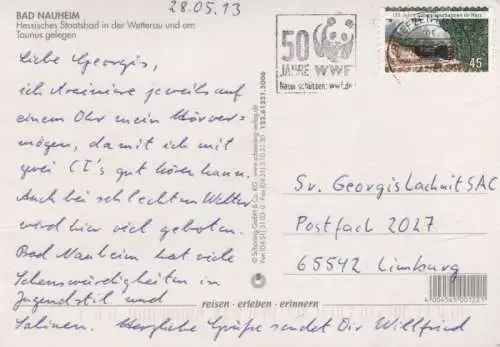 28.05.13
BAD NAUHEIM
Hessisches Staatsbad in der Wetterau und am
Taunus gelegen
Liebe Georgis,
ich trainiere jeweils auf
einem Ohr mein Hörver-
mögen, damit ich mit
zwei CI's gut hören kann.
Auch bei schlechtem Wetter
wird hier viel geboten.
Bad Nauheim hat viele
Sehenswürdigkeiten in
Jugendstil und
Salinen. Herzliche Grüße sendet Dir Willfried
50
JAHRE WWF
Natur schützen: wwf.de
45
Sr. Georgis Lachnit SAC
Postfach 2027
65542 Limburg
reisen · erleben · erinnern
4 004545 001221